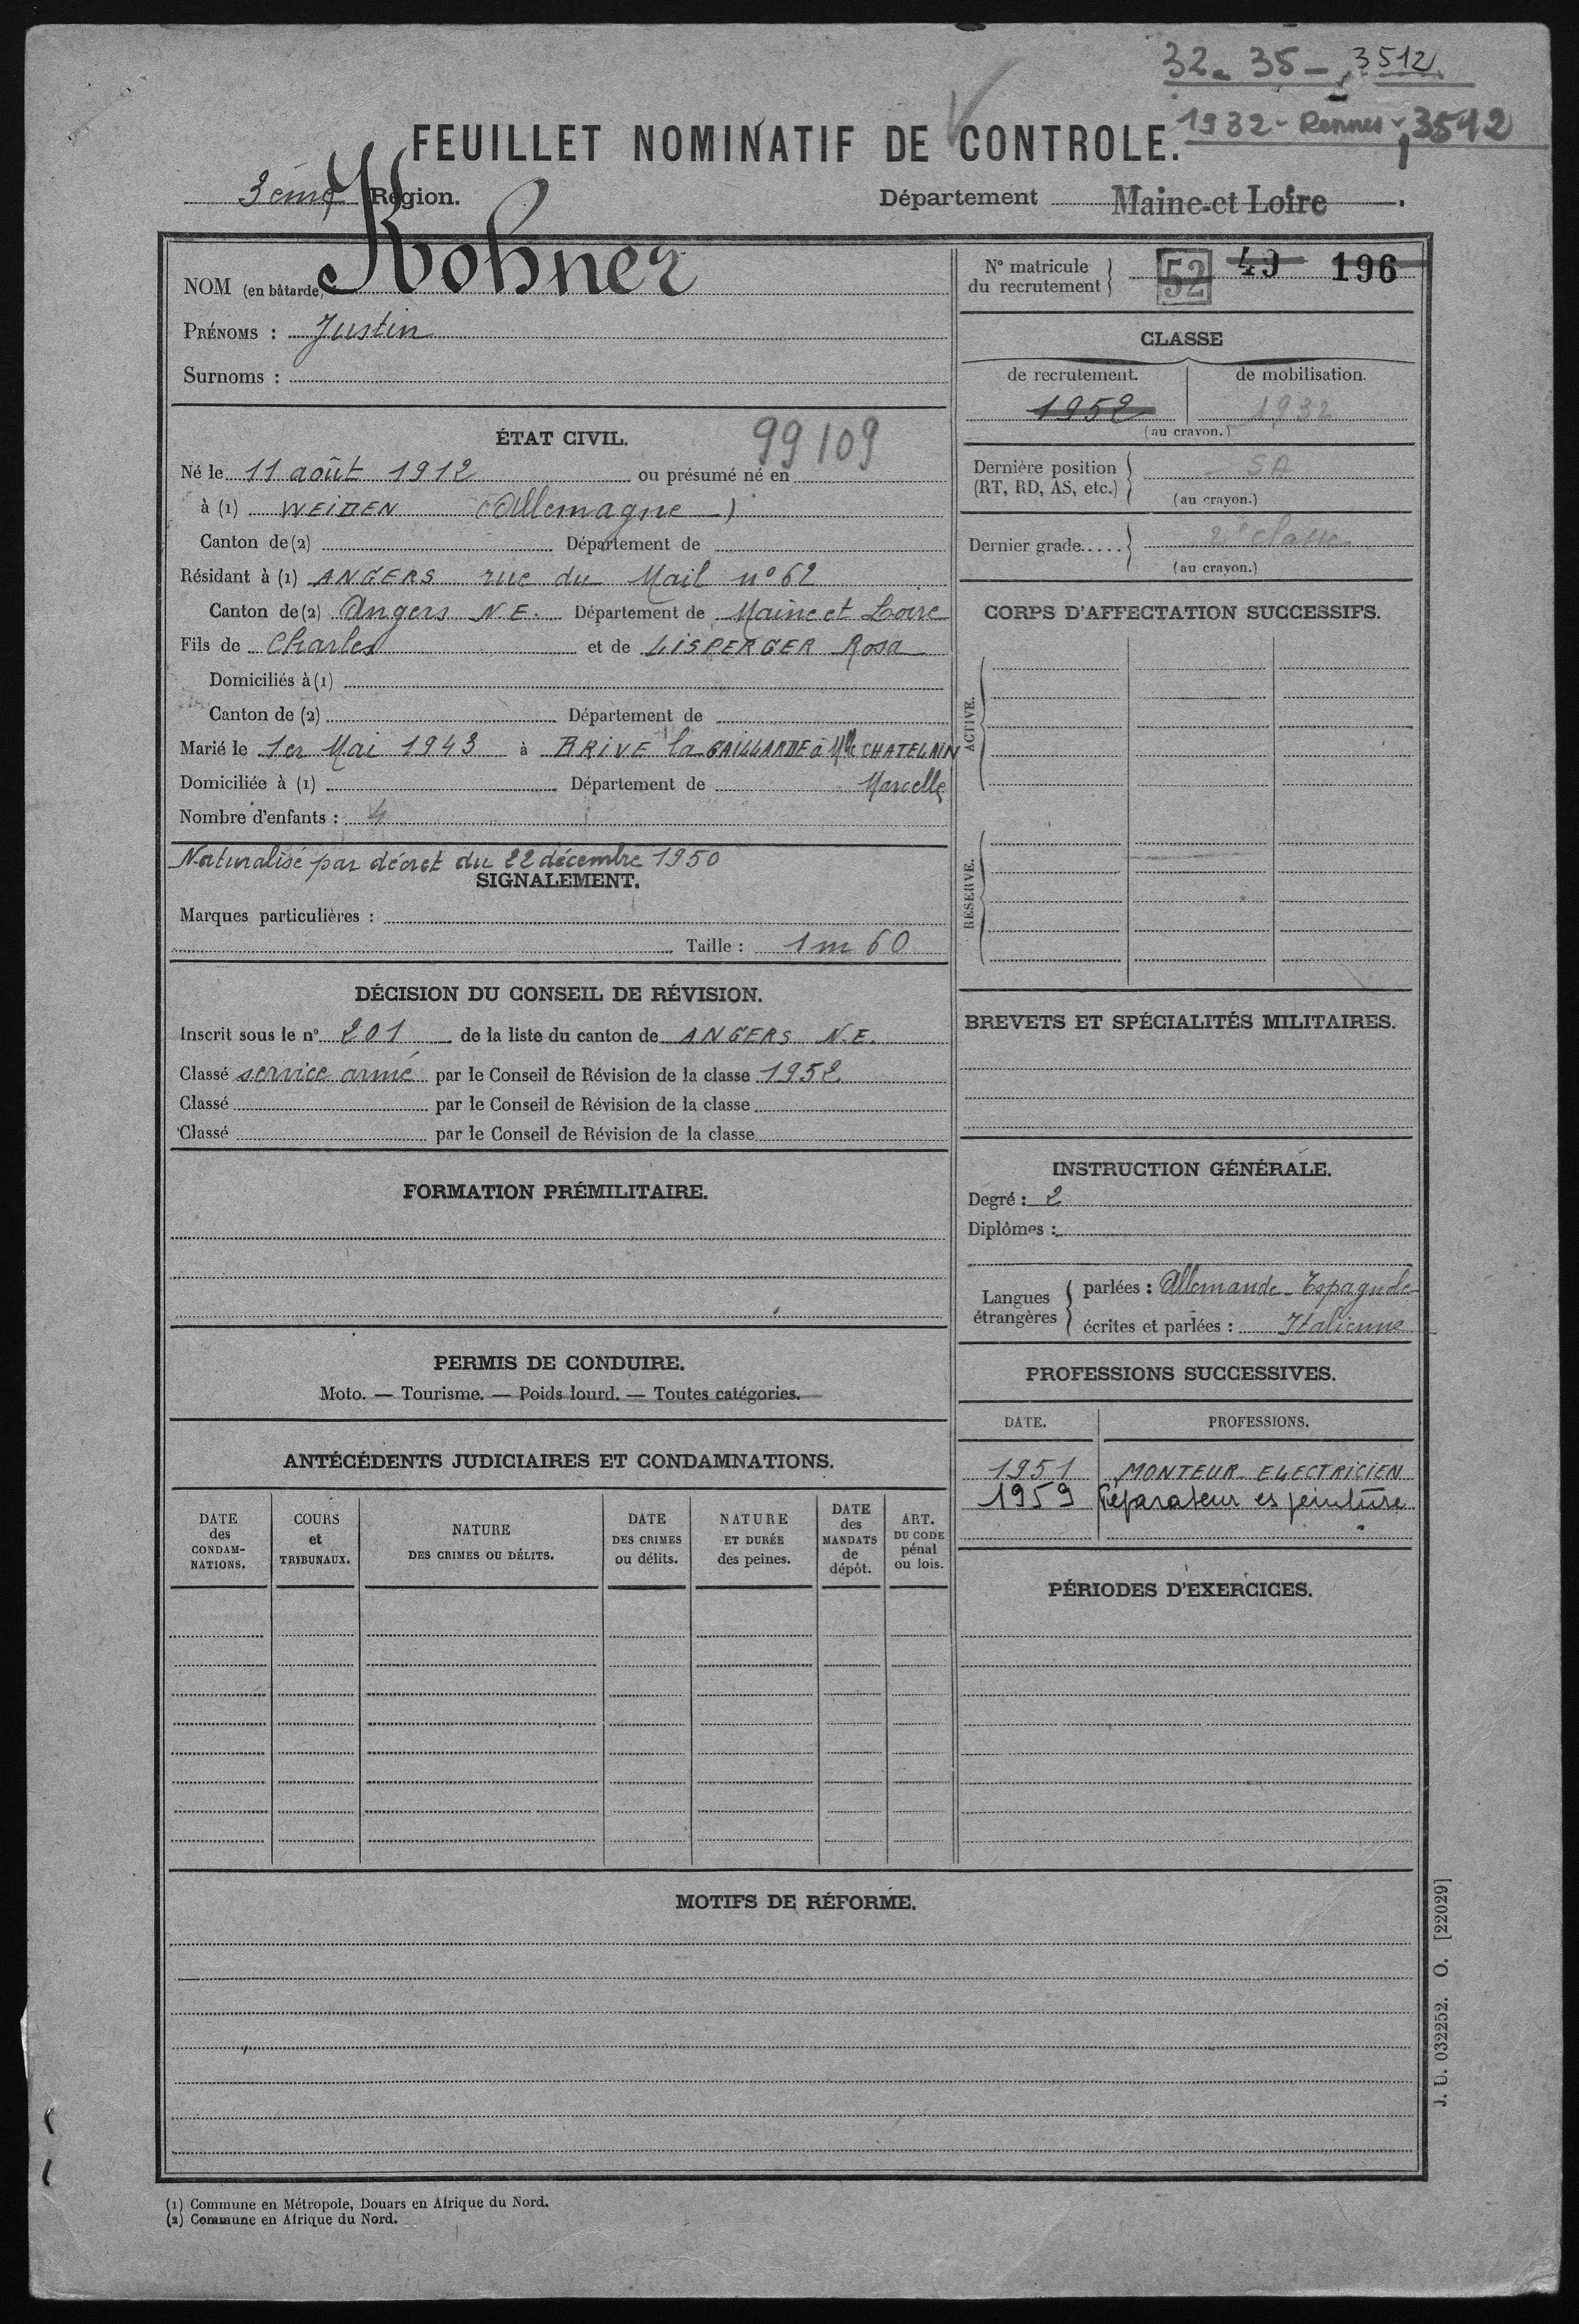 32 - 35 - 3512
1932 - Rennes - 3512
FEUILLET NOMINATIF DE CONTROLE.
3ème Région.
Département Maine-et Loire.
NOM (en bâtarde) Kohner
PRÉNOMS : Justin
Surnoms :
ÉTAT CIVIL.
99109
Né le 11 août 1912 ou présumé né en
à (1) WEIDEN (Allemagne)
Canton de (2) Département de
Résidant à (1) ANGERS rue du Mail n° 62
Canton de (2) Angers N.E. Département de Maine et Loire
Fils de Charles et de LISPERGER Rosa
Domiciliés à (1)
Canton de (2) Département de
Marié le 1er Mai 1943 à BRIVE la GAILLARDE à Mlle CHATELAIN
Domiciliée à (1) Département de Marcelle
Nombre d'enfants : 4
Naturalisé par décret du 22 décembre 1950
SIGNALEMENT.
Marques particulières :
Taille : 1m 60
DÉCISION DU CONSEIL DE RÉVISION.
Inscrit sous le n° 201 de la liste du canton de ANGERS N.E.
Classé service armé par le Conseil de Révision de la classe 1952
Classé par le Conseil de Révision de la classe
Classé par le Conseil de Révision de la classe
FORMATION PRÉMILITAIRE.
PERMIS DE CONDUIRE.
Moto. — Tourisme. — Poids lourd. — Toutes catégories.
ANTÉCÉDENTS JUDICIAIRES ET CONDAMNATIONS.
DATE des CONDAMNATIONS.
COURS et TRIBUNAUX.
NATURE DES CRIMES OU DÉLITS.
DATE DES CRIMES ou délits.
NATURE ET DURÉE des peines.
DATE des MANDATS de dépôt.
ART. DU CODE pénal ou lois.
N° matricule du recrutement 52 49 196
CLASSE
de recrutement. de mobilisation.
1952 1932
(au crayon.)
Dernière position (RT, RD, AS, etc.) SA
(au crayon.)
Dernier grade..... 2e classe
(au crayon.)
CORPS D'AFFECTATION SUCCESSIFS.
ACTIVE.
RÉSERVE.
BREVETS ET SPÉCIALITÉS MILITAIRES.
INSTRUCTION GÉNÉRALE.
Degré : 2
Diplômes :
Langues étrangères
parlées : Allemande - Espagnole
écrites et parlées : Italienne
PROFESSIONS SUCCESSIVES.
DATE. PROFESSIONS.
1951 MONTEUR ELECTRICIEN
1959 Réparateur es peinture
PÉRIODES D'EXERCICES.
MOTIFS DE RÉFORME.
J. U. 032252. O. [22029]
(1) Commune en Métropole, Douars en Afrique du Nord.
(2) Commune en Afrique du Nord.